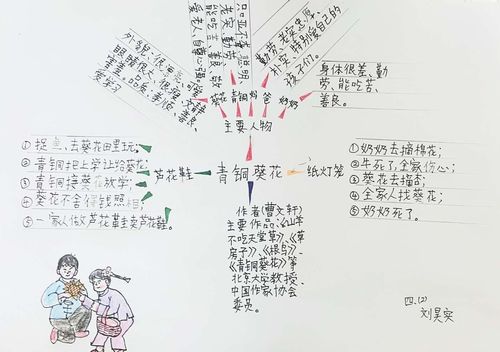 外貌：很漂亮，
眼睛很大、很难
善良、
爱学习
爱老人、自尊心强。
能吃苦、善良、敬
老实、勤劳
勤劳、老实忠厚、
朴实、特别爱自己的
孩子们。
身体很差、勤
劳、能吃苦、
善良。
葵花 青铜 妈 爸 奶奶
主要人物
①捉鱼、去葵花田里玩；
②青铜把上学让给葵花；
③青铜接葵花放学；
④葵花不舍得钱照相；
⑤一家人做芦花鞋卖芦花鞋。
芦花鞋
青铜葵花
纸灯笼
①奶奶去摘棉花；
②牛死了，全家伤心；
③葵花去摘杏；
④全家人找葵花；
⑤奶奶死了。
作者(曹文轩)
主要作品：《山羊
不吃天堂草》、《草
房子》、《根鸟》、
《青铜葵花》等
北京大学教授、
中国作家协会
委员。
四、(2)
刘昊奕